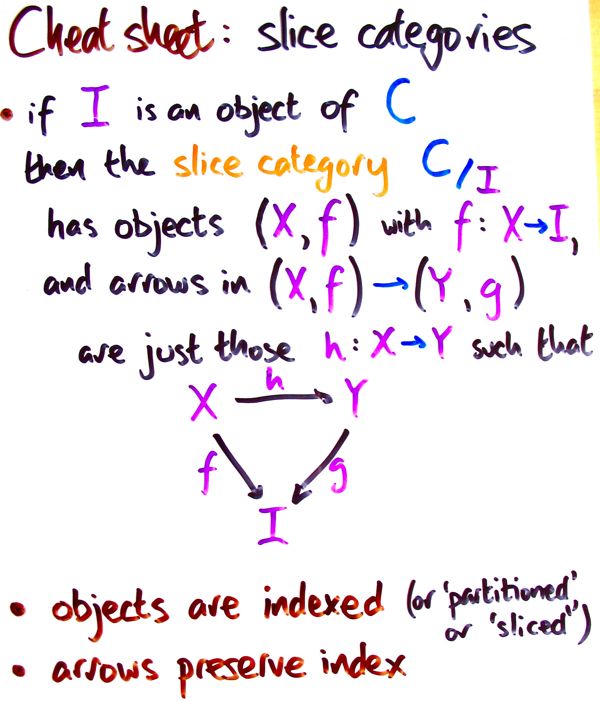 Cheat sheet: slice categories
• if I is an object of C
then the slice category C/I
has objects (X, f) with f: X→I,
and arrows in (X, f)→(Y, g)
are just those h: X→Y such that
h
X → Y
f g
I
• objects are indexed (or 'partitioned',
or 'sliced'')
• arrows preserve index